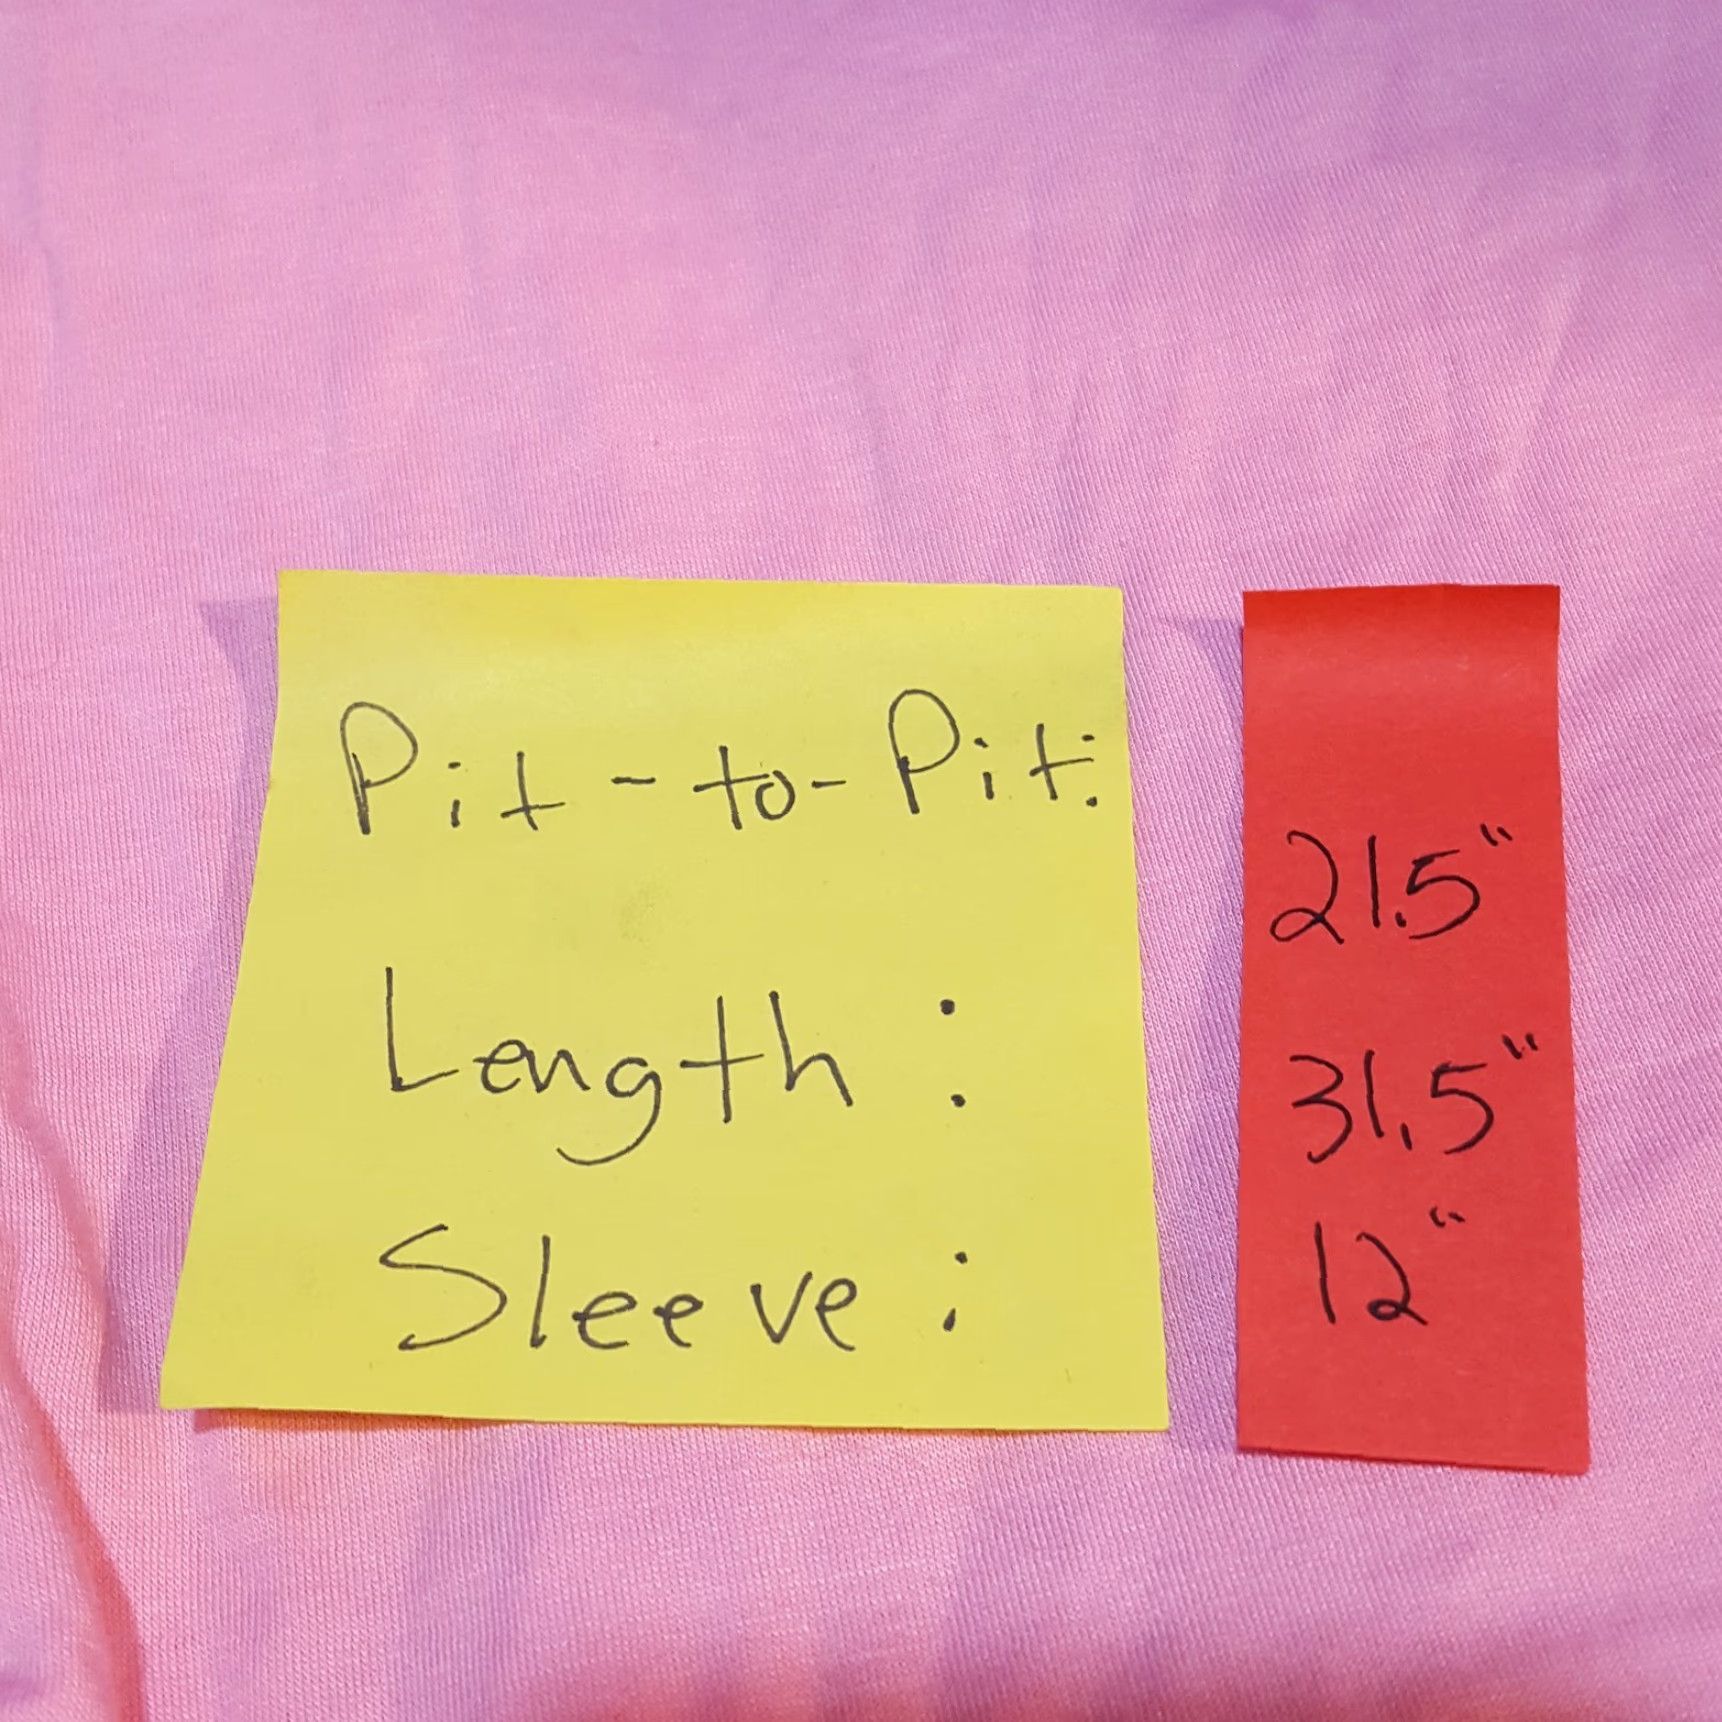 Pit-to-Pit:
21.5"
Length:
31.5"
Sleeve:
12"